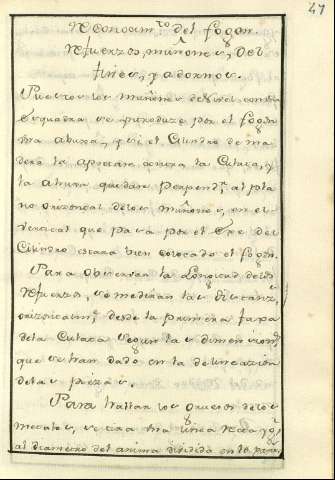 47
Reconocim.to del fogon.
Refuerzos, muñones, del
fines, y adornos.
Puestos los muñones de nivel con la
esquadra se introduze por el fogon
una abuxa, y si el Cilindro de ma
dera la apretare acia la Culata, y
la abuxa quedare perpend.r al pla
no orizontal de los muñones, en el
vertical que pasa por el Exe del
Cilindro estara bien colocado el fogon.
Para observar la Longitud de los
Refuerzos, se mediran las distanz.s
orizontalm.te desde la primera faxa
de la Culata segun las dimensiones
que se han dado en la delineazion
de las piezas.
Para hallar los gruesos de los
metales, se tira una linea recta
al diametro del anima dividido en 16 partes,